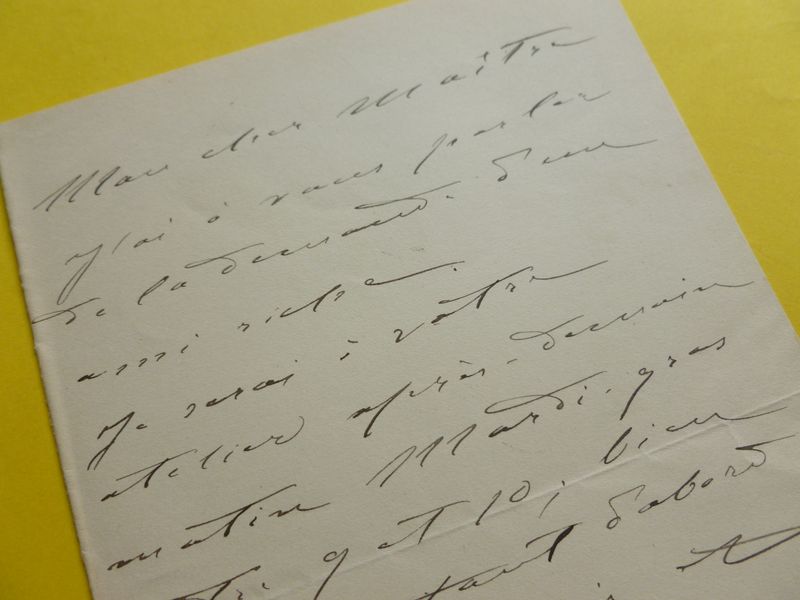 Mon cher Maître
J'ai à vous parler
de la demande d'un
ami riche.
Je serai à votre
atelier après-demain
matin Mardi-gras
9 et 10, bien
tout d'abord